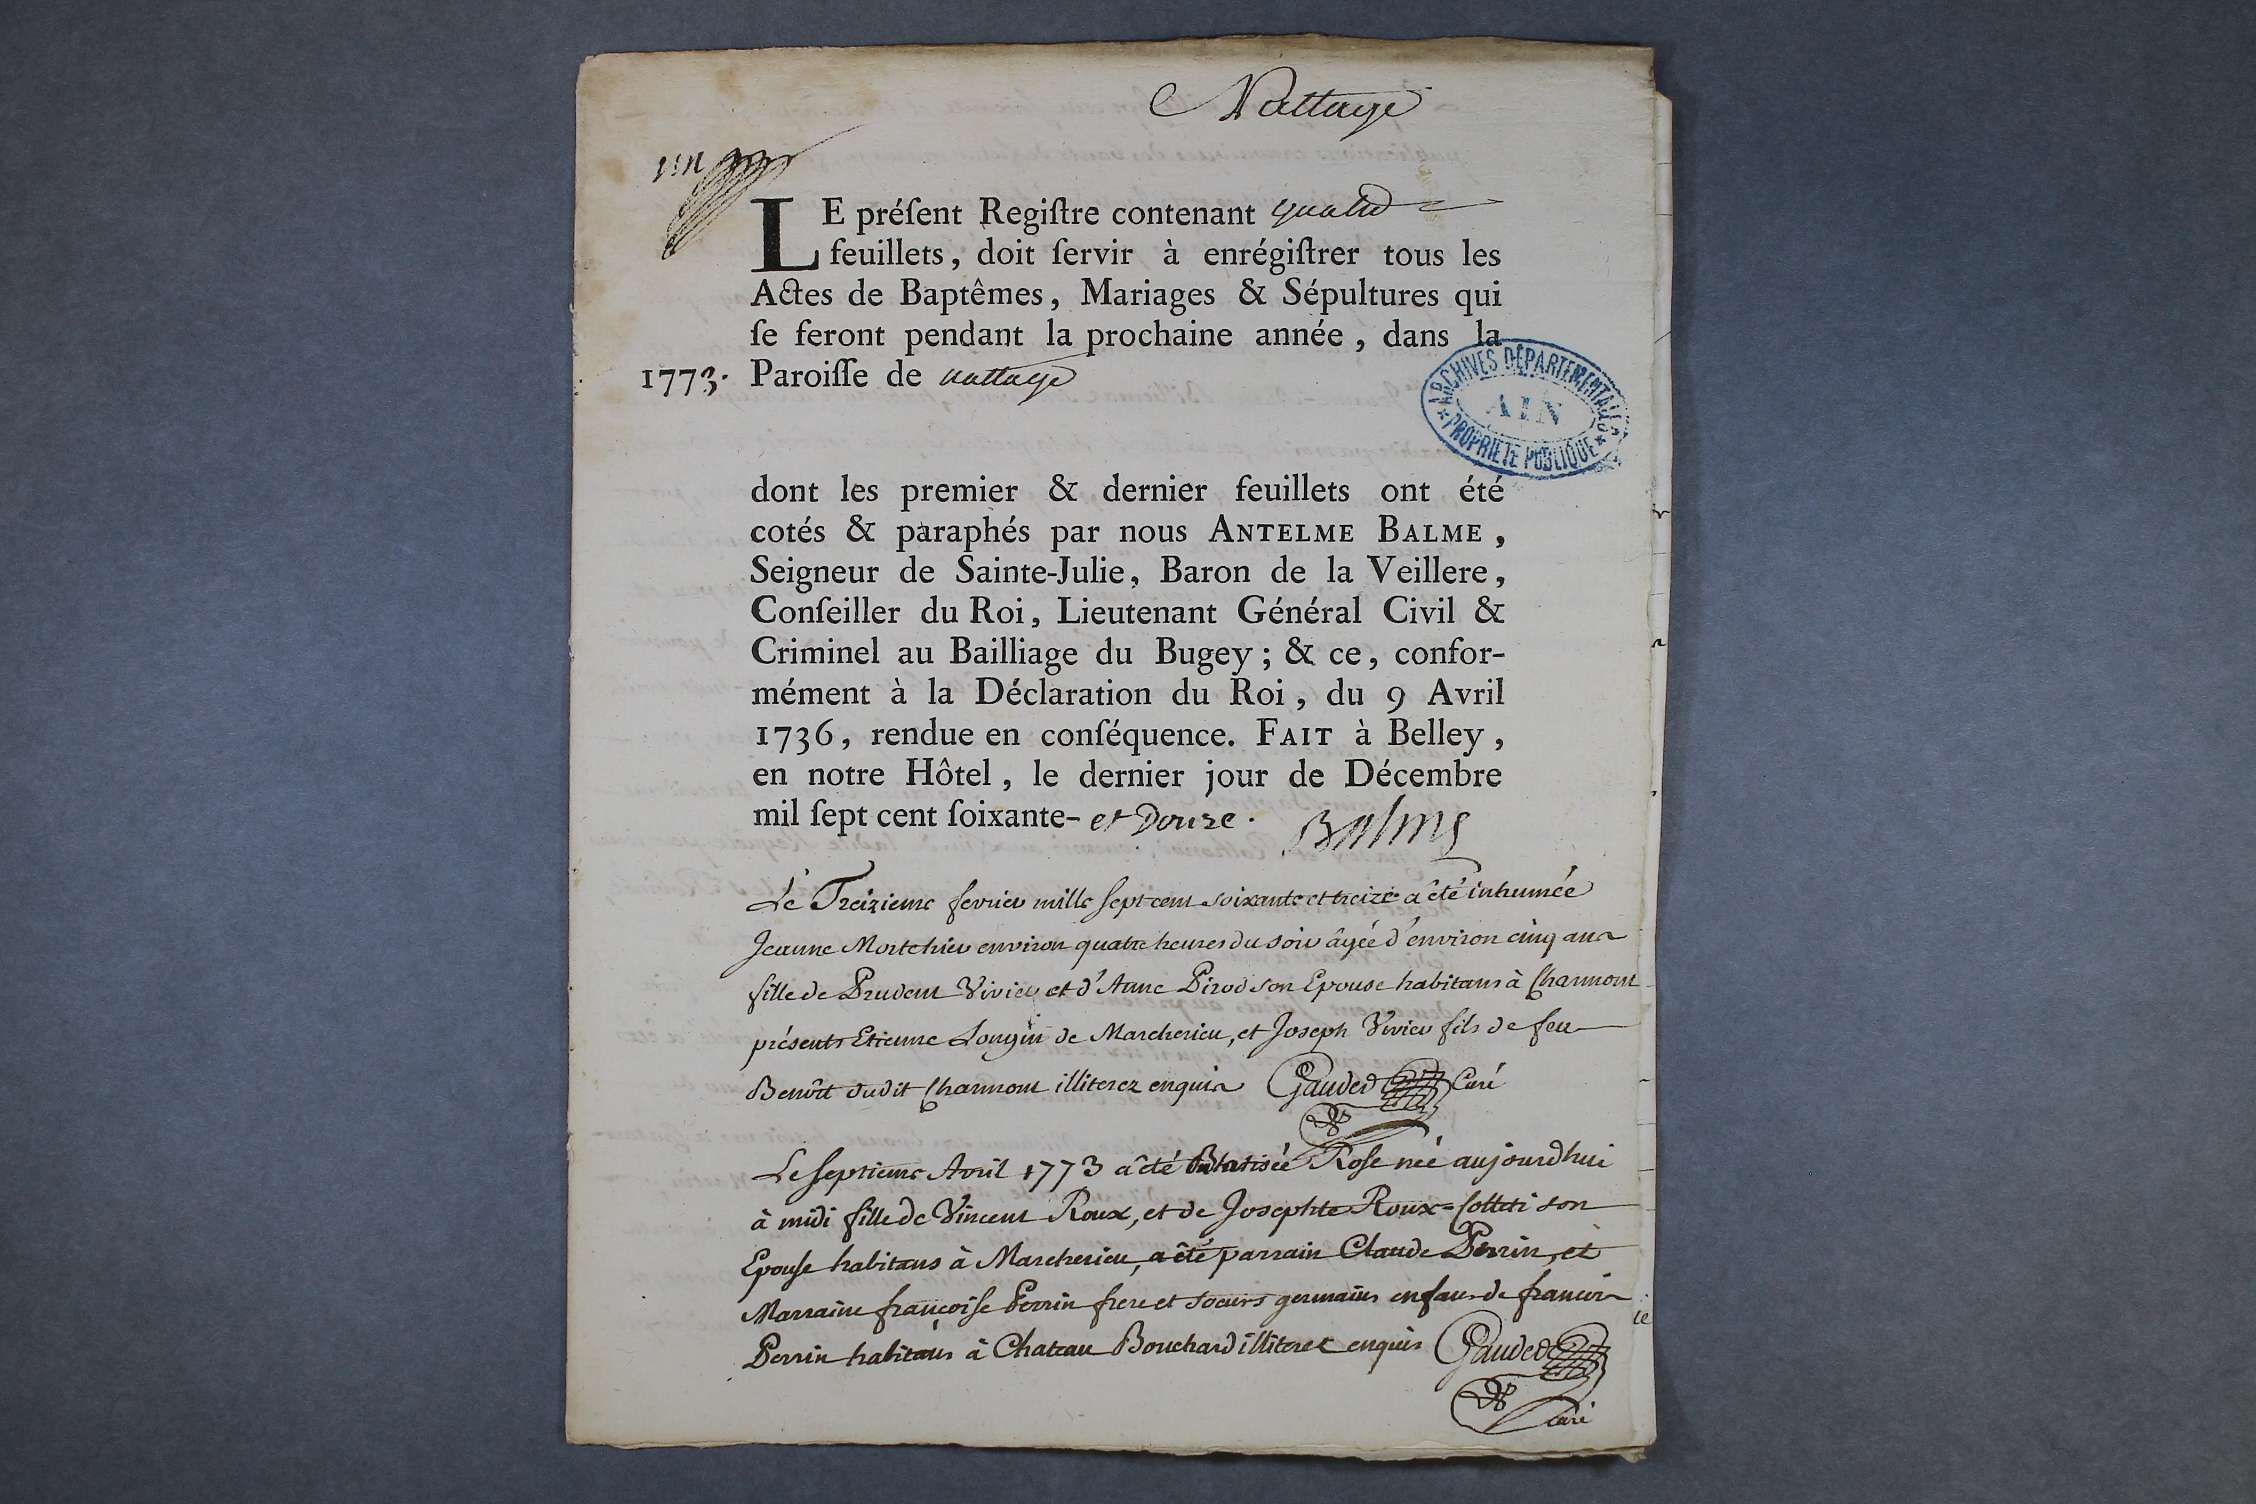 Nattage
un
LE préſent Regiſtre contenant quatre
feuillets, doit ſervir à enrégiſtrer tous les
Actes de Baptêmes, Mariages & Sépultures qui
ſe feront pendant la prochaine année, dans la
1773. Paroiſſe de nattage
ARCHIVES DÉPARTEMENTALES
AIN
PROPRIETE PUBLIQUE
dont les premier & dernier feuillets ont été
cotés & paraphés par nous ANTELME BALME,
Seigneur de Sainte-Julie, Baron de la Veillere,
Conſeiller du Roi, Lieutenant Général Civil &
Criminel au Bailliage du Bugey; & ce, confor-
mément à la Déclaration du Roi, du 9 Avril
1736, rendue en conſéquence. FAIT à Belley,
en notre Hôtel, le dernier jour de Décembre
mil ſept cent ſoixante- et Douze. Balme
Le Treizieme fevrier mille sept cent soixante et treize a été inhumée
Jeanne environ quatre heures du soir âgée d'environ cinq ans
fille de Prudent Vivier et d'Anne Pirod son Epouse habitans à Channont
présents Etienne Longin de Marcherieu, et Joseph Vivier fils de feu
Benôit dudit Channont illiterez enquis Gauded Curé
Le septieme Avril 1773 a été Batisée Rose née aujourdhui
à midi fille de Vincent Roux, et de Josephte Roux=Colleti son
Epouse habitans à Marcherieu, a été parrain Claude Perrin, et
Marraine françoise Perrin frere et soeurs germains enfans de francois
Perrin habitans à Chateau Bouchard illiterez enquis Gauded
Curé